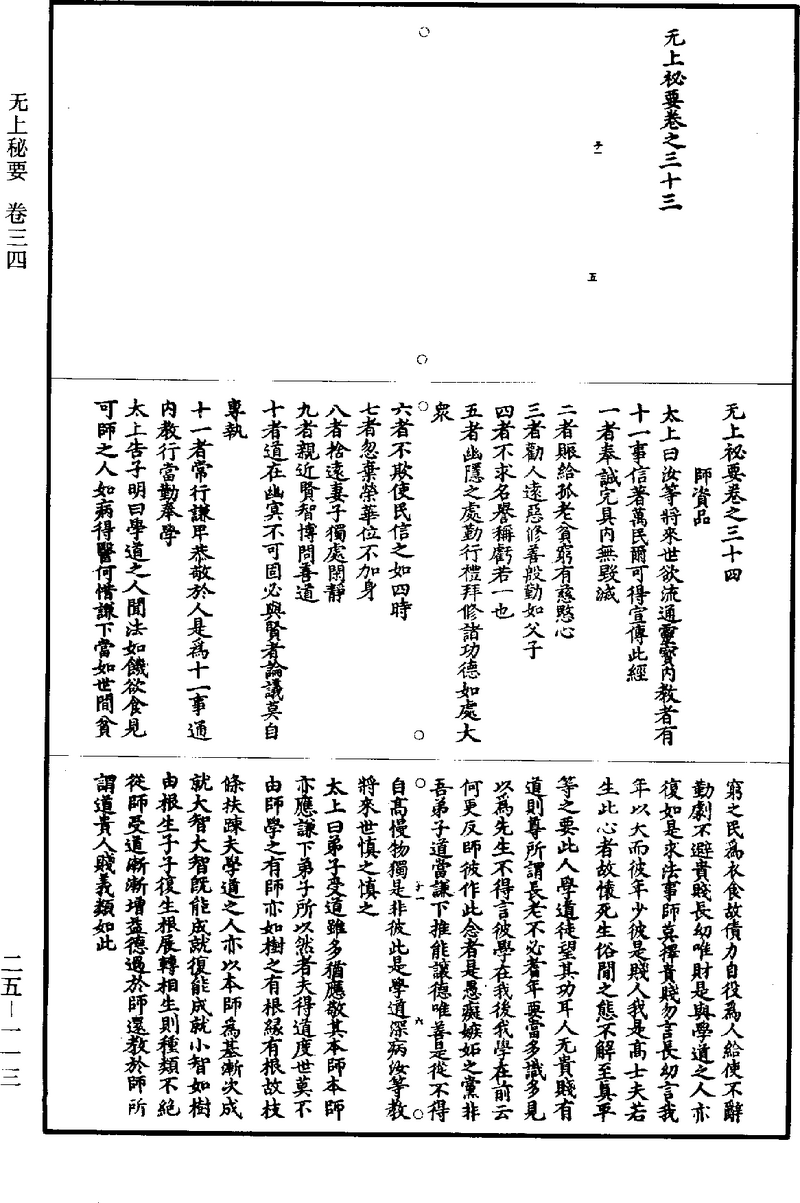 无上秘要卷之三十三
子一
五
无上秘要卷之三十四
師資品
太上曰汝等將來世欲流通靈寳内教者有
十一事信著萬民爾可得宣傳此經
一者奉誡完具内無毀滅
二者賑給孤老貧窮有慈愍心
三者勸人遠惡修善殷勤如父子
四者不求名譽稱虧若一也
五者幽隱之處勤行禮拜修諸功德如處大
衆
六者不欺使民信之如四時
七者忽棄榮華位不加身
八者捨遠妻子獨處閑靜
九者親近賢智博問善道
十者道在幽冥不可固必與賢者論議莫自
專執
十一者常行謙卑恭敬於人是爲十一事通
内教行當勤奉學
太上告子明曰學道之人聞法如饑欲食見
可師之人如病得醫何惜謙下當如世間貧
窮之民爲衣食故債力自役爲人給使不辭
勤劇不避貴賤長幼唯財是與學道之人亦
復如是求法事師莫擇貴賤勿言長幼言我
年以大而彼年少彼是賤人我是高士夫若
生此心者故懷死生俗間之態不解至真平
等之要此人學道徒望其功耳人无貴賤有
道則尊所謂長老不必耆年要當多識多見
以爲先生不得言彼學在我後我學在前云
何更反師彼作此念者是愚癡嫉妬之黨非
吾弟子道當謙下推能讓德唯善是從不得
子一
六
自高慢物獨是非彼此是學道深病汝等教
將來世慎之慎之
太上曰弟子受道雖多猶應敬其本師本師
亦應謙下弟子所以然者夫得道度世莫不
由師學之有師亦如樹之有根緣有根故枝
條扶踈夫學道之人亦以本師爲基漸次成
就大智大智旣能成就復能成就小智如樹
由根生子子復生根展轉相生則種類不絕
從師受道漸漸增益德過於師還教於師所
謂道貴人賤義類如此
无上秘要　卷三四
二五－一一三